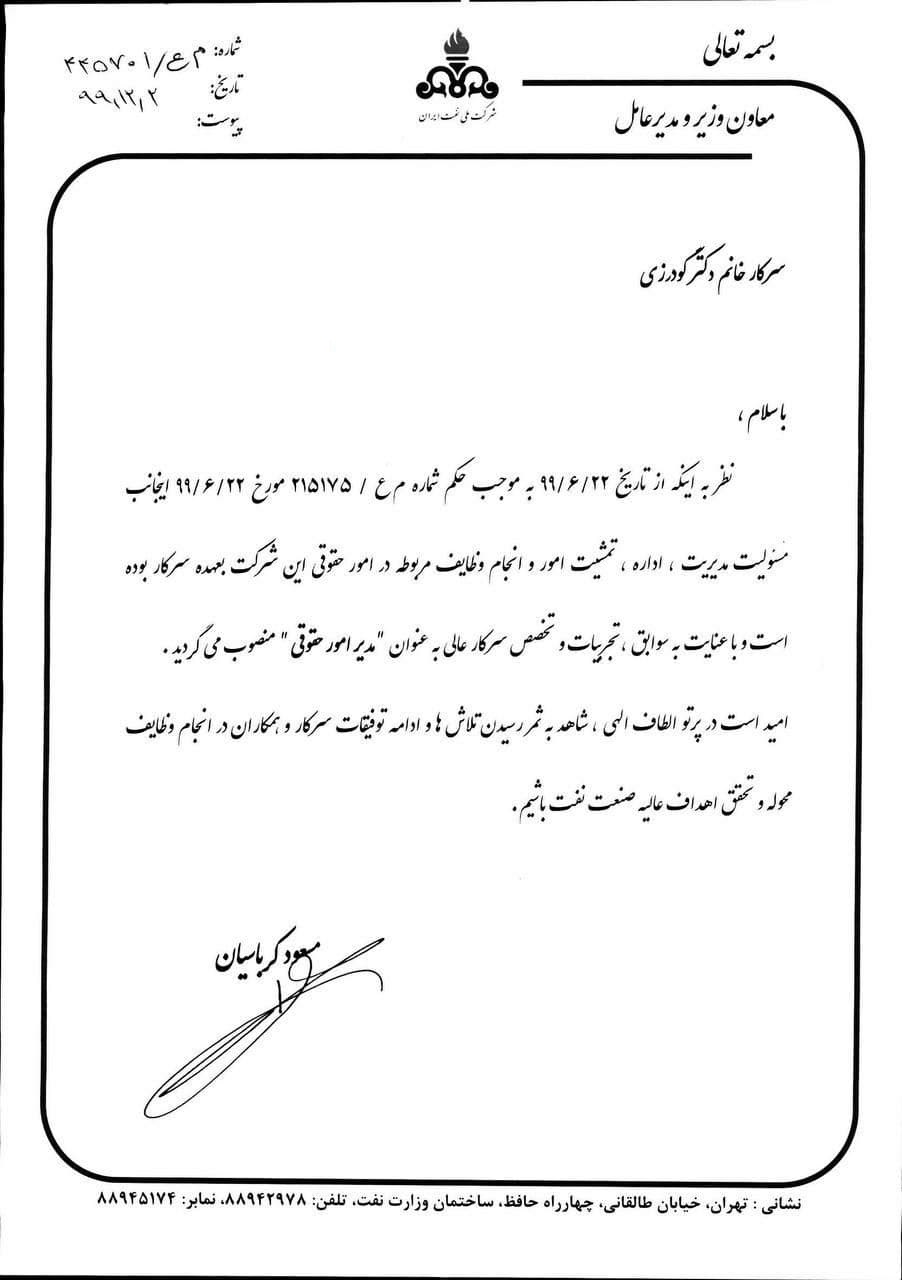 بسمه تعالی
معاون وزیر و مدیرعامل
شرکت ملی نفت ایران
شماره: م ع/۴۴۵۷۰۱
تاریخ: ۹۹,۱۲,۲
پیوست:
سرکار خانم دکتر گودرزی
باسلام ،
نظر به اینکه از تاریخ ۹۹/۶/۲۲ به موجب حکم شماره م ع / ۲۱۵۱۷۵ مورخ ۹۹/۶/۲۲ اینجانب
مسئولیت مدیریت ، اداره ، تمشیت امور و انجام وظایف مربوطه در امور حقوقی این شرکت بعهده سرکار بوده
است و با عنایت به سوابق ، تجربیات و تخصص سرکار عالی به عنوان "مدیر امور حقوقی" منصوب می گردید .
امید است در پرتو الطاف الهی ، شاهد به ثمر رسیدن تلاش ها و ادامه توفیقات سرکار و همکاران در انجام وظایف
محوله و تحقق اهداف عالیه صنعت نفت باشیم .
مسعود کرباسیان
نشانی : تهران، خیابان طالقانی، چهارراه حافظ، ساختمان وزارت نفت، تلفن: ۸۸۹۴۲۹۷۸، نمابر: ۸۸۹۴۵۱۷۴